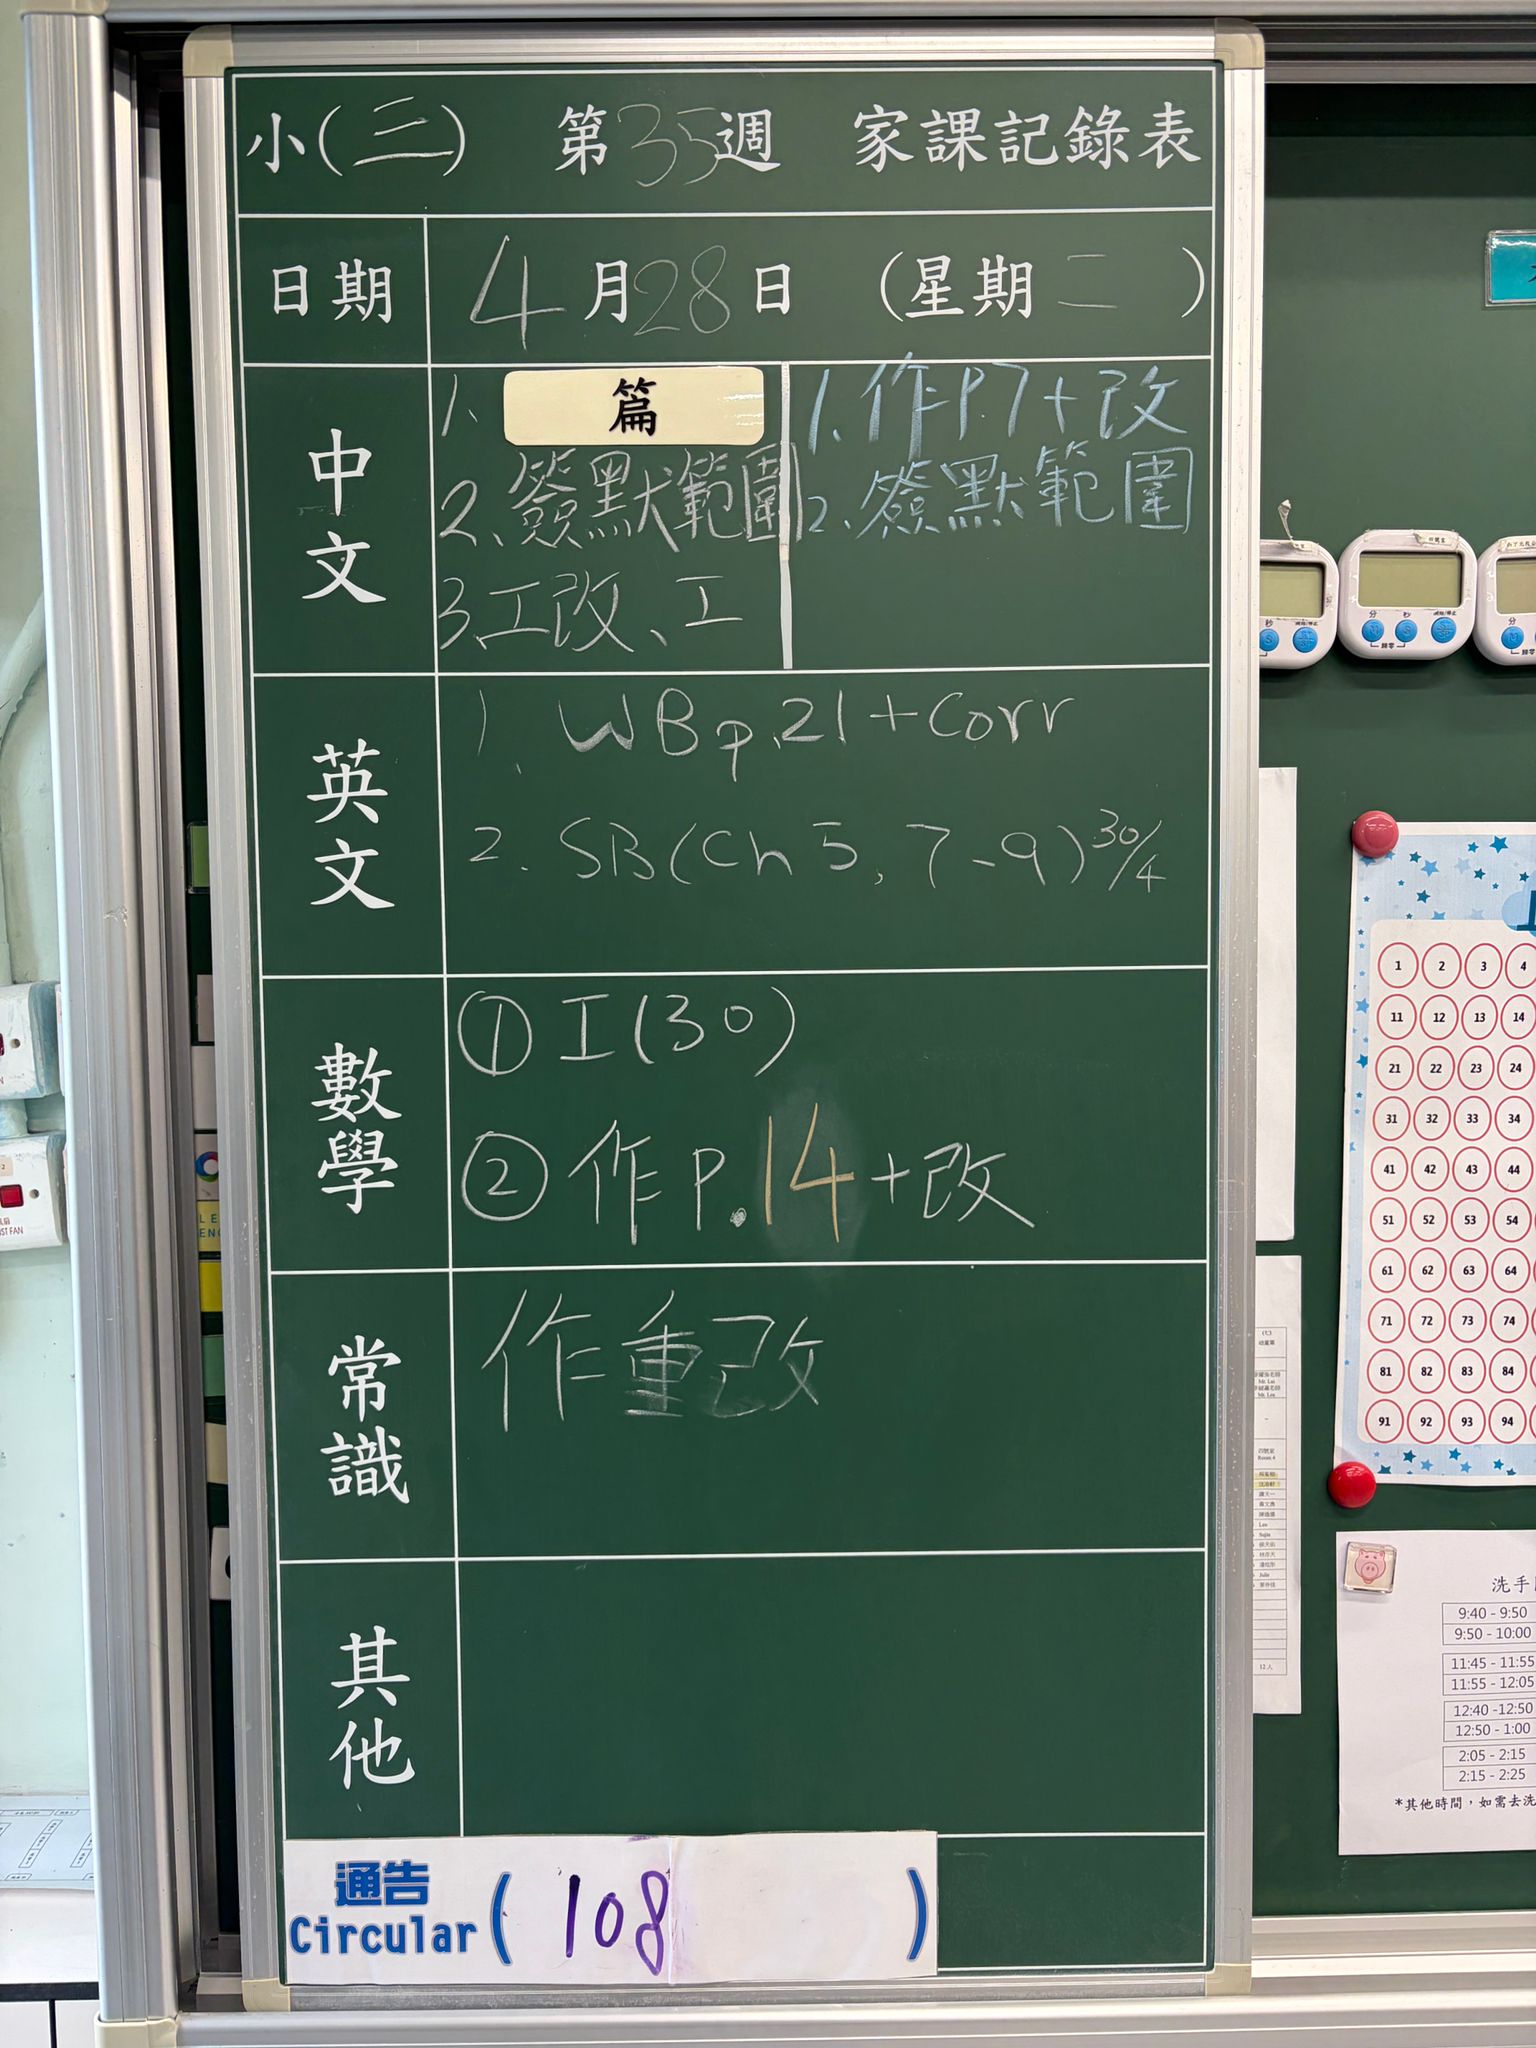 小(三) 第35週 家課記錄表
日期 4月28日 (星期二)
中文
1. 篇
2. 簽默範圍
3. 工改、工
1. 作P.7+改
2. 簽默範圍
英文
1. WB p.21+Corr
2. SB(Ch 5, 7-9) 30/4
數學
① 工(30)
② 作P.14+改
常識
作重改
其他
通告
Circular ( 108 )
分 秒
M S
歸零
1 2 3 4
11 12 13 14
21 22 23 24
31 32 33 34
41 42 43 44
51 52 53 54
61 62 63 64
71 72 73 74
81 82 83 84
91 92 93 94
洗手
9:40 - 9:50
9:50 - 10:00
11:45 - 11:55
11:55 - 12:05
12:40 -12:50
12:50 - 1:00
2:05 - 2:15
2:15 - 2:25
*其他時間，如需去洗
12人